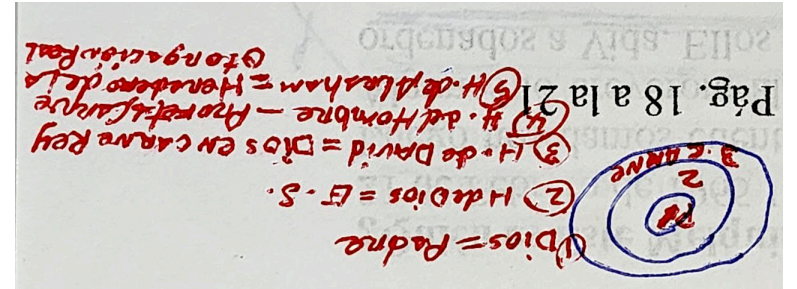 Pág. 18 a la 21
① Dios = Padre
② H de Dios = E.S.
③ H. de David = Dios en carne Rey
④ H. del Hombre - Profeta
⑤ H. de Abraham = Heredero de la
Otorgación Real
2
3. CARNE